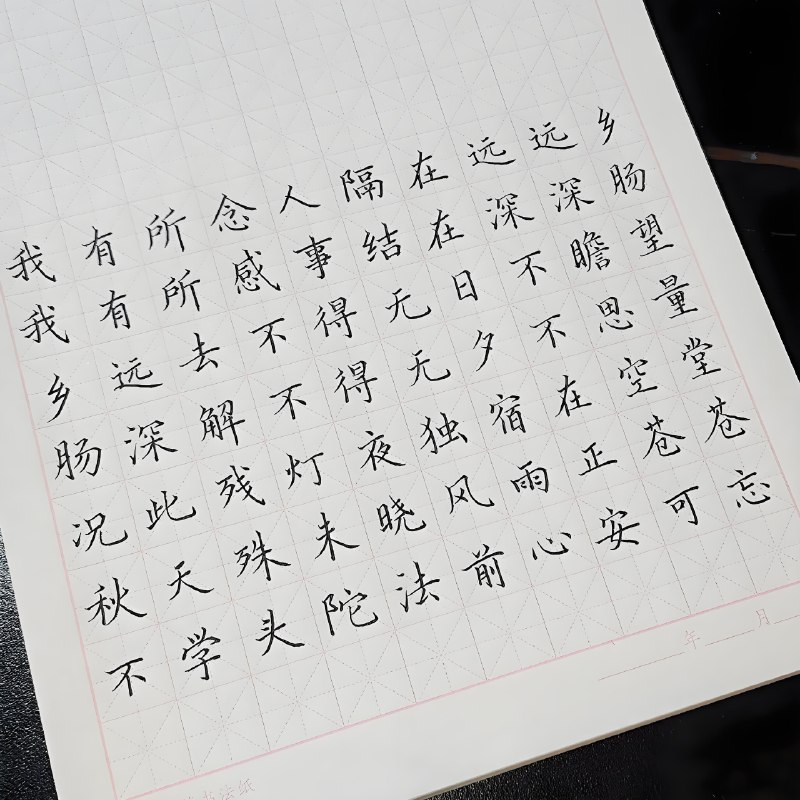 我有所念人隔在远远乡
我有所感事结在深深肠
乡远去不得无日不瞻望
肠深解不得无夕不思量
况此残灯夜独宿在空堂
秋天殊未晓风雨正苍苍
不学头陀法前心安可忘
年 月
书法纸